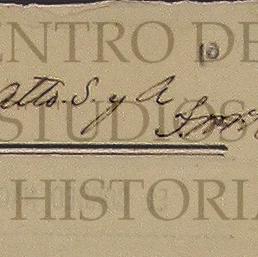 ENTRO DE
10
Atto. S y A
STUDIOS
HISTORIA